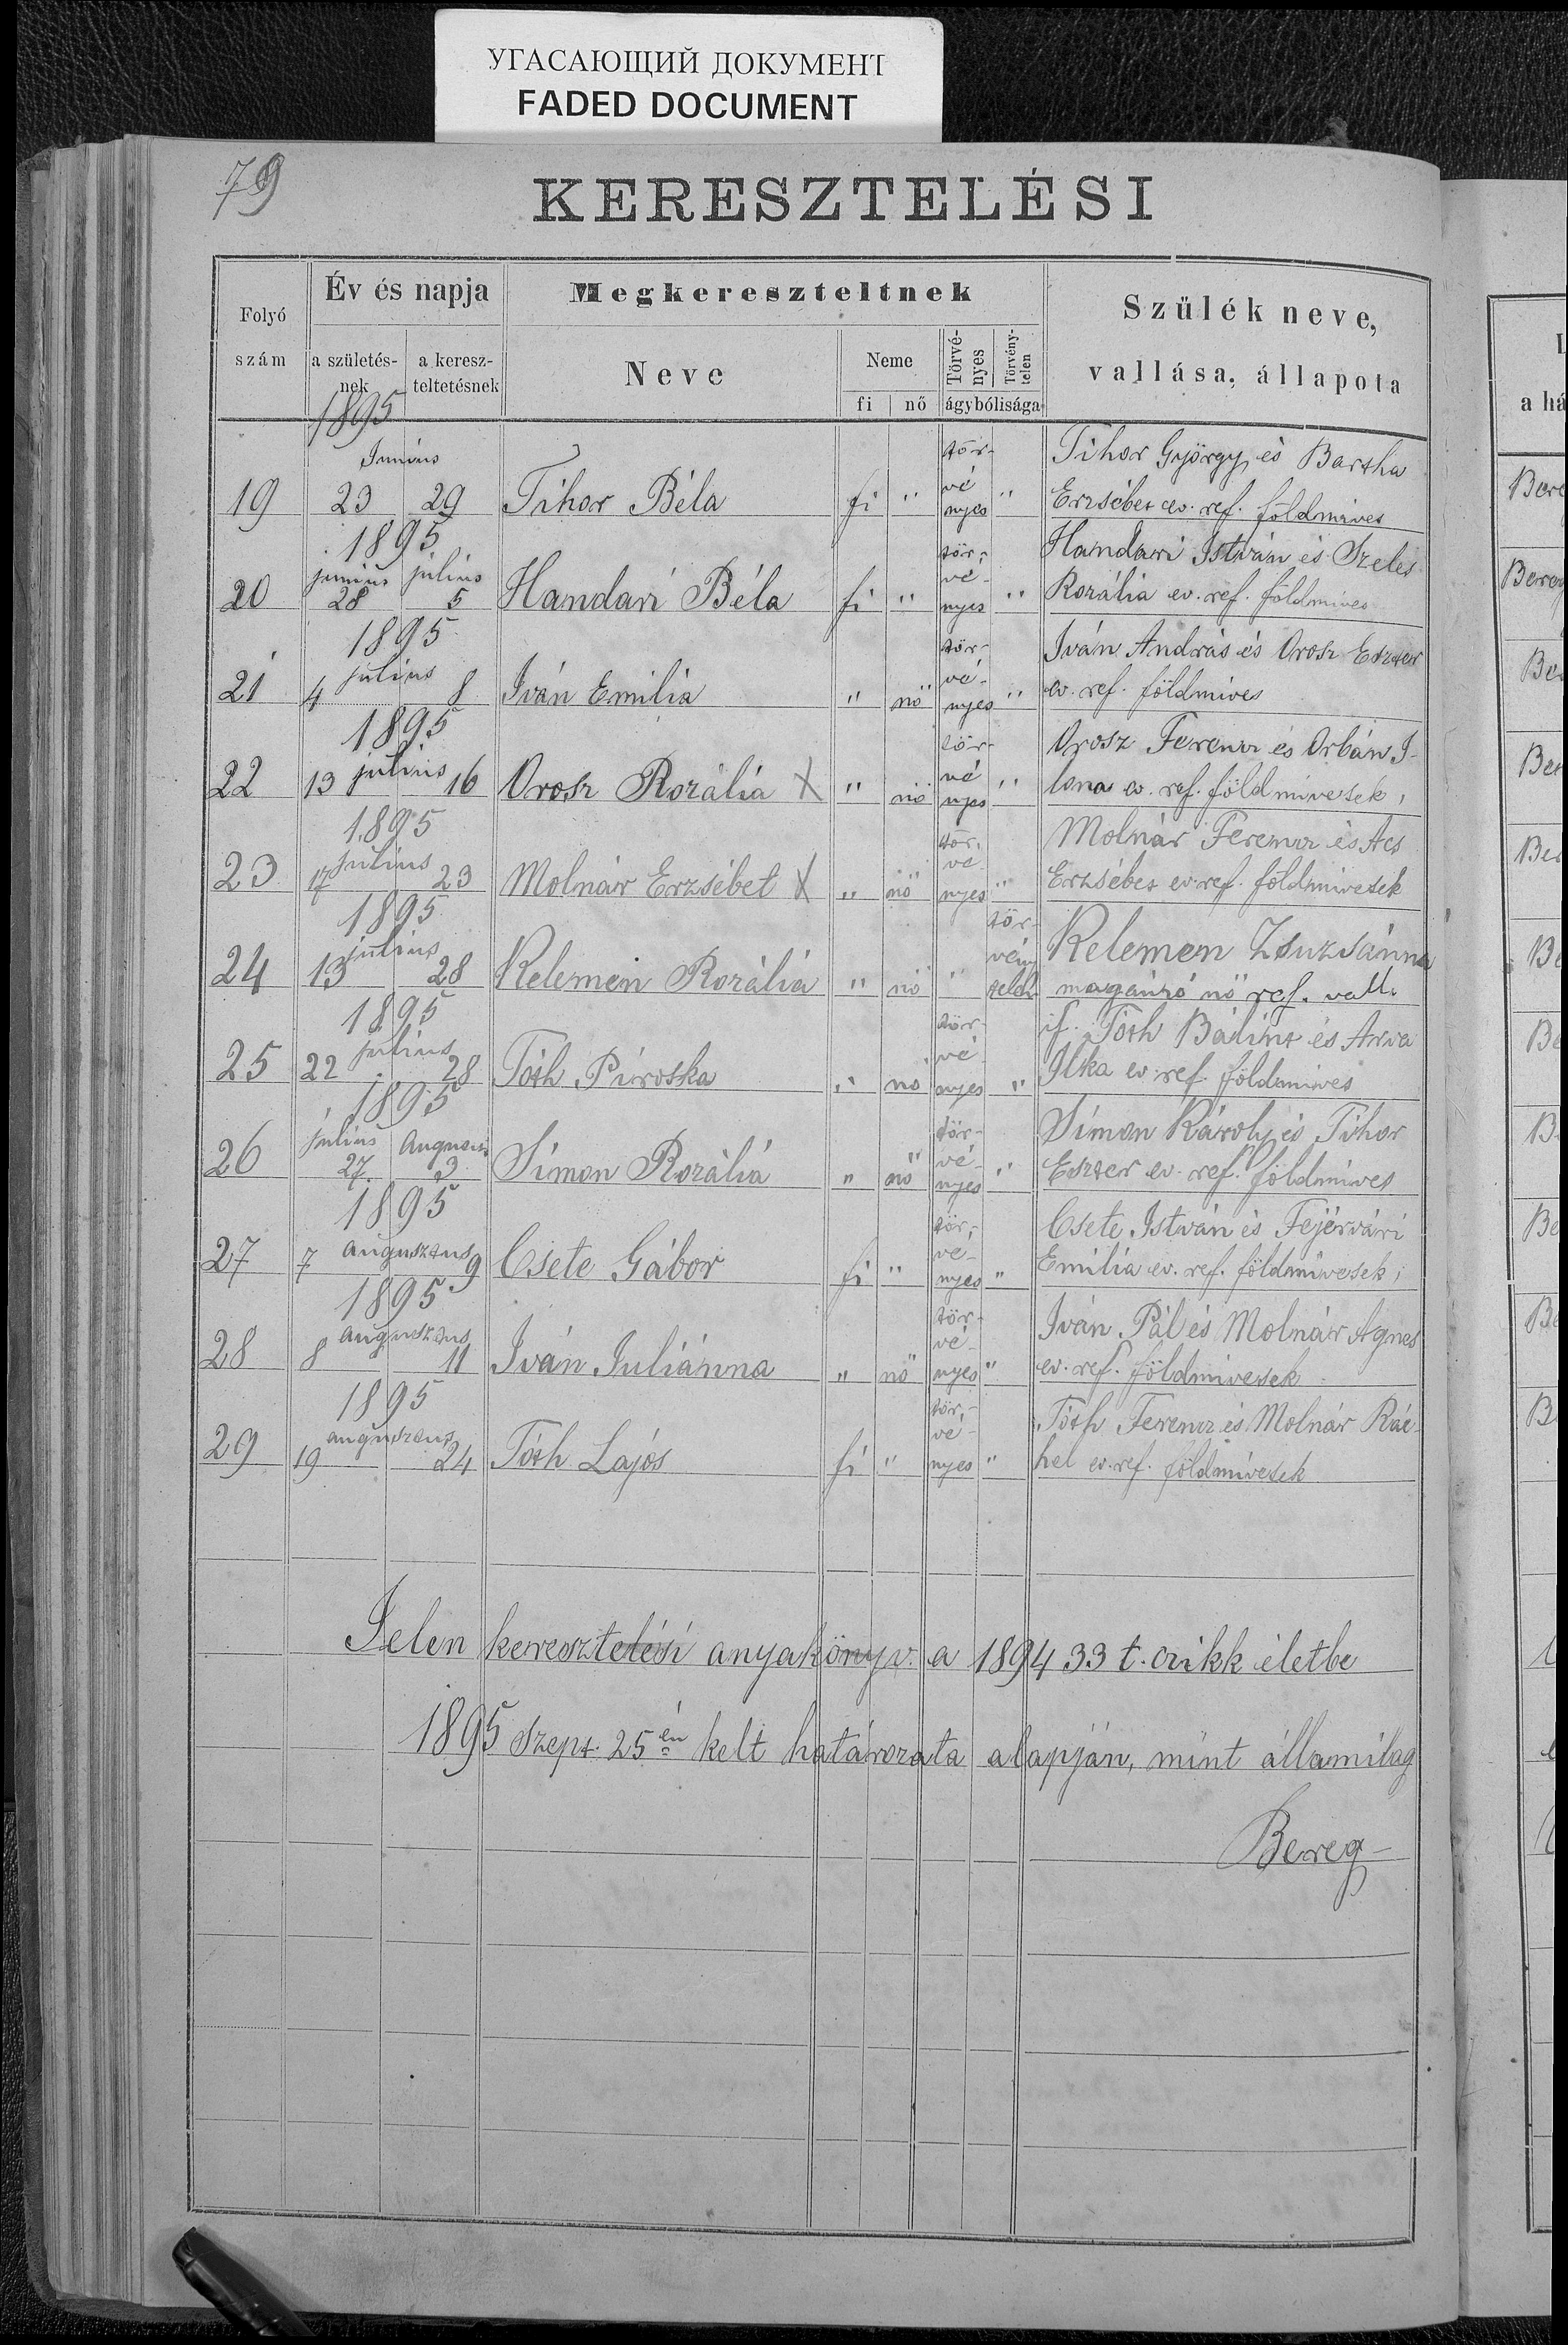 УГАСАЮЩИЙ ДОКУМЕНТ
FADED DOCUMENT
79
KERESZTELÉSI
Folyó szám
Év és napja
a születés-
nek
a keresz-
teltetésnek
Megkereszteltnek
Neve
Neme
fi nő
Törvé-
nyes
Törvény-
telen
ágybólisága
Szülék neve,
vallása, állapota
1895
Junius
tör- Tihor György és Bartha
19 23 29 Tihor Béla fi " vé nyes " Erzsébet ev. ref. földmives
1895
junius julius tör- Handari István és Szeles
20 28 5 Handari Béla fi " vé- nyes " Rozália ev. ref. földmives
1895
julius tör- Iván András és Orosz Eszter
21 4 8 Iván Emilia " nő vé- nyes " ev. ref. földmives
1895
julius tör- Orosz Ferencz és Orbán I-
22 13 16 Orosz Rozália X " nő vé nyes " lona ev. ref. földmivesek,
1895
julius tör. Molnár Ferencz és Acs
23 17 23 Molnár Erzsébet X " nő vé nyes " Erzsébet ev. ref. földmivesek
1895
julius tör- Kelemen Zsuzsánna
24 13 28 Kelemen Rozália " nő " vény telen magánzó nő ref. vall.
1895
julius tör- if. Tóth Bálint és Arva
25 22 28 Tóth Piroska " nő vé- nyes " Ilka ev. ref. földmives
1895
julius tör- Simon Károly és Tihor
26 27 3 Simon Rozália " nő vé- nyes " Eszter ev. ref. földmives
1895
augusztus tör- Csete István és Fejérvári
27 7 9 Csete Gábor fi " vé- nyes " Emilia ev. ref. földmivesek,
1895
augusztus tör- Iván Pál és Molnár Agnes
28 8 11 Iván Juliánna " nő vé- nyes " ev. ref. földmivesek
1895
augusztus tör- Tóth Ferencz és Molnár Rác-
29 19 24 Tóth Lajos fi " vé- nyes " hel ev. ref. földmivesek
Jelen keresztelési anyakönyv. a 1894 33 t. czikk életbe
1895 szept. 25 én kelt határozata alapján, mint államilag
Bereg-